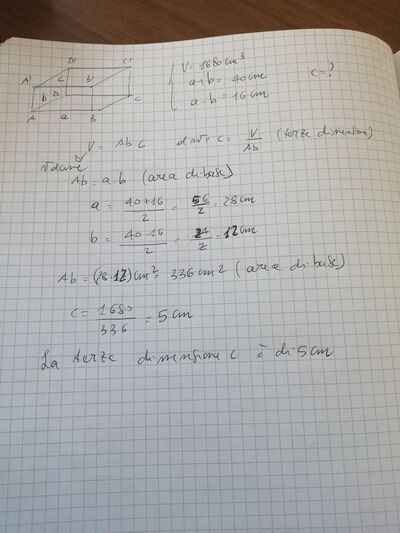 D' C'
A' C B'
b D C
A a B
V = 1680 cm³
a+b = 40 cm
a-b = 16 cm
c=?
V = Ab c dove c = V/Ab (terze dimensione)
volume
Ab = a·b (area di base)
a = 40+16/2 = 56/2 = 28 cm
b = 40-16/2 = 24/2 = 12 cm
Ab = (28·12) cm² = 336 cm² (area di base)
c = 1680/336 = 5 cm
La terze dimensione c è di 5 cm